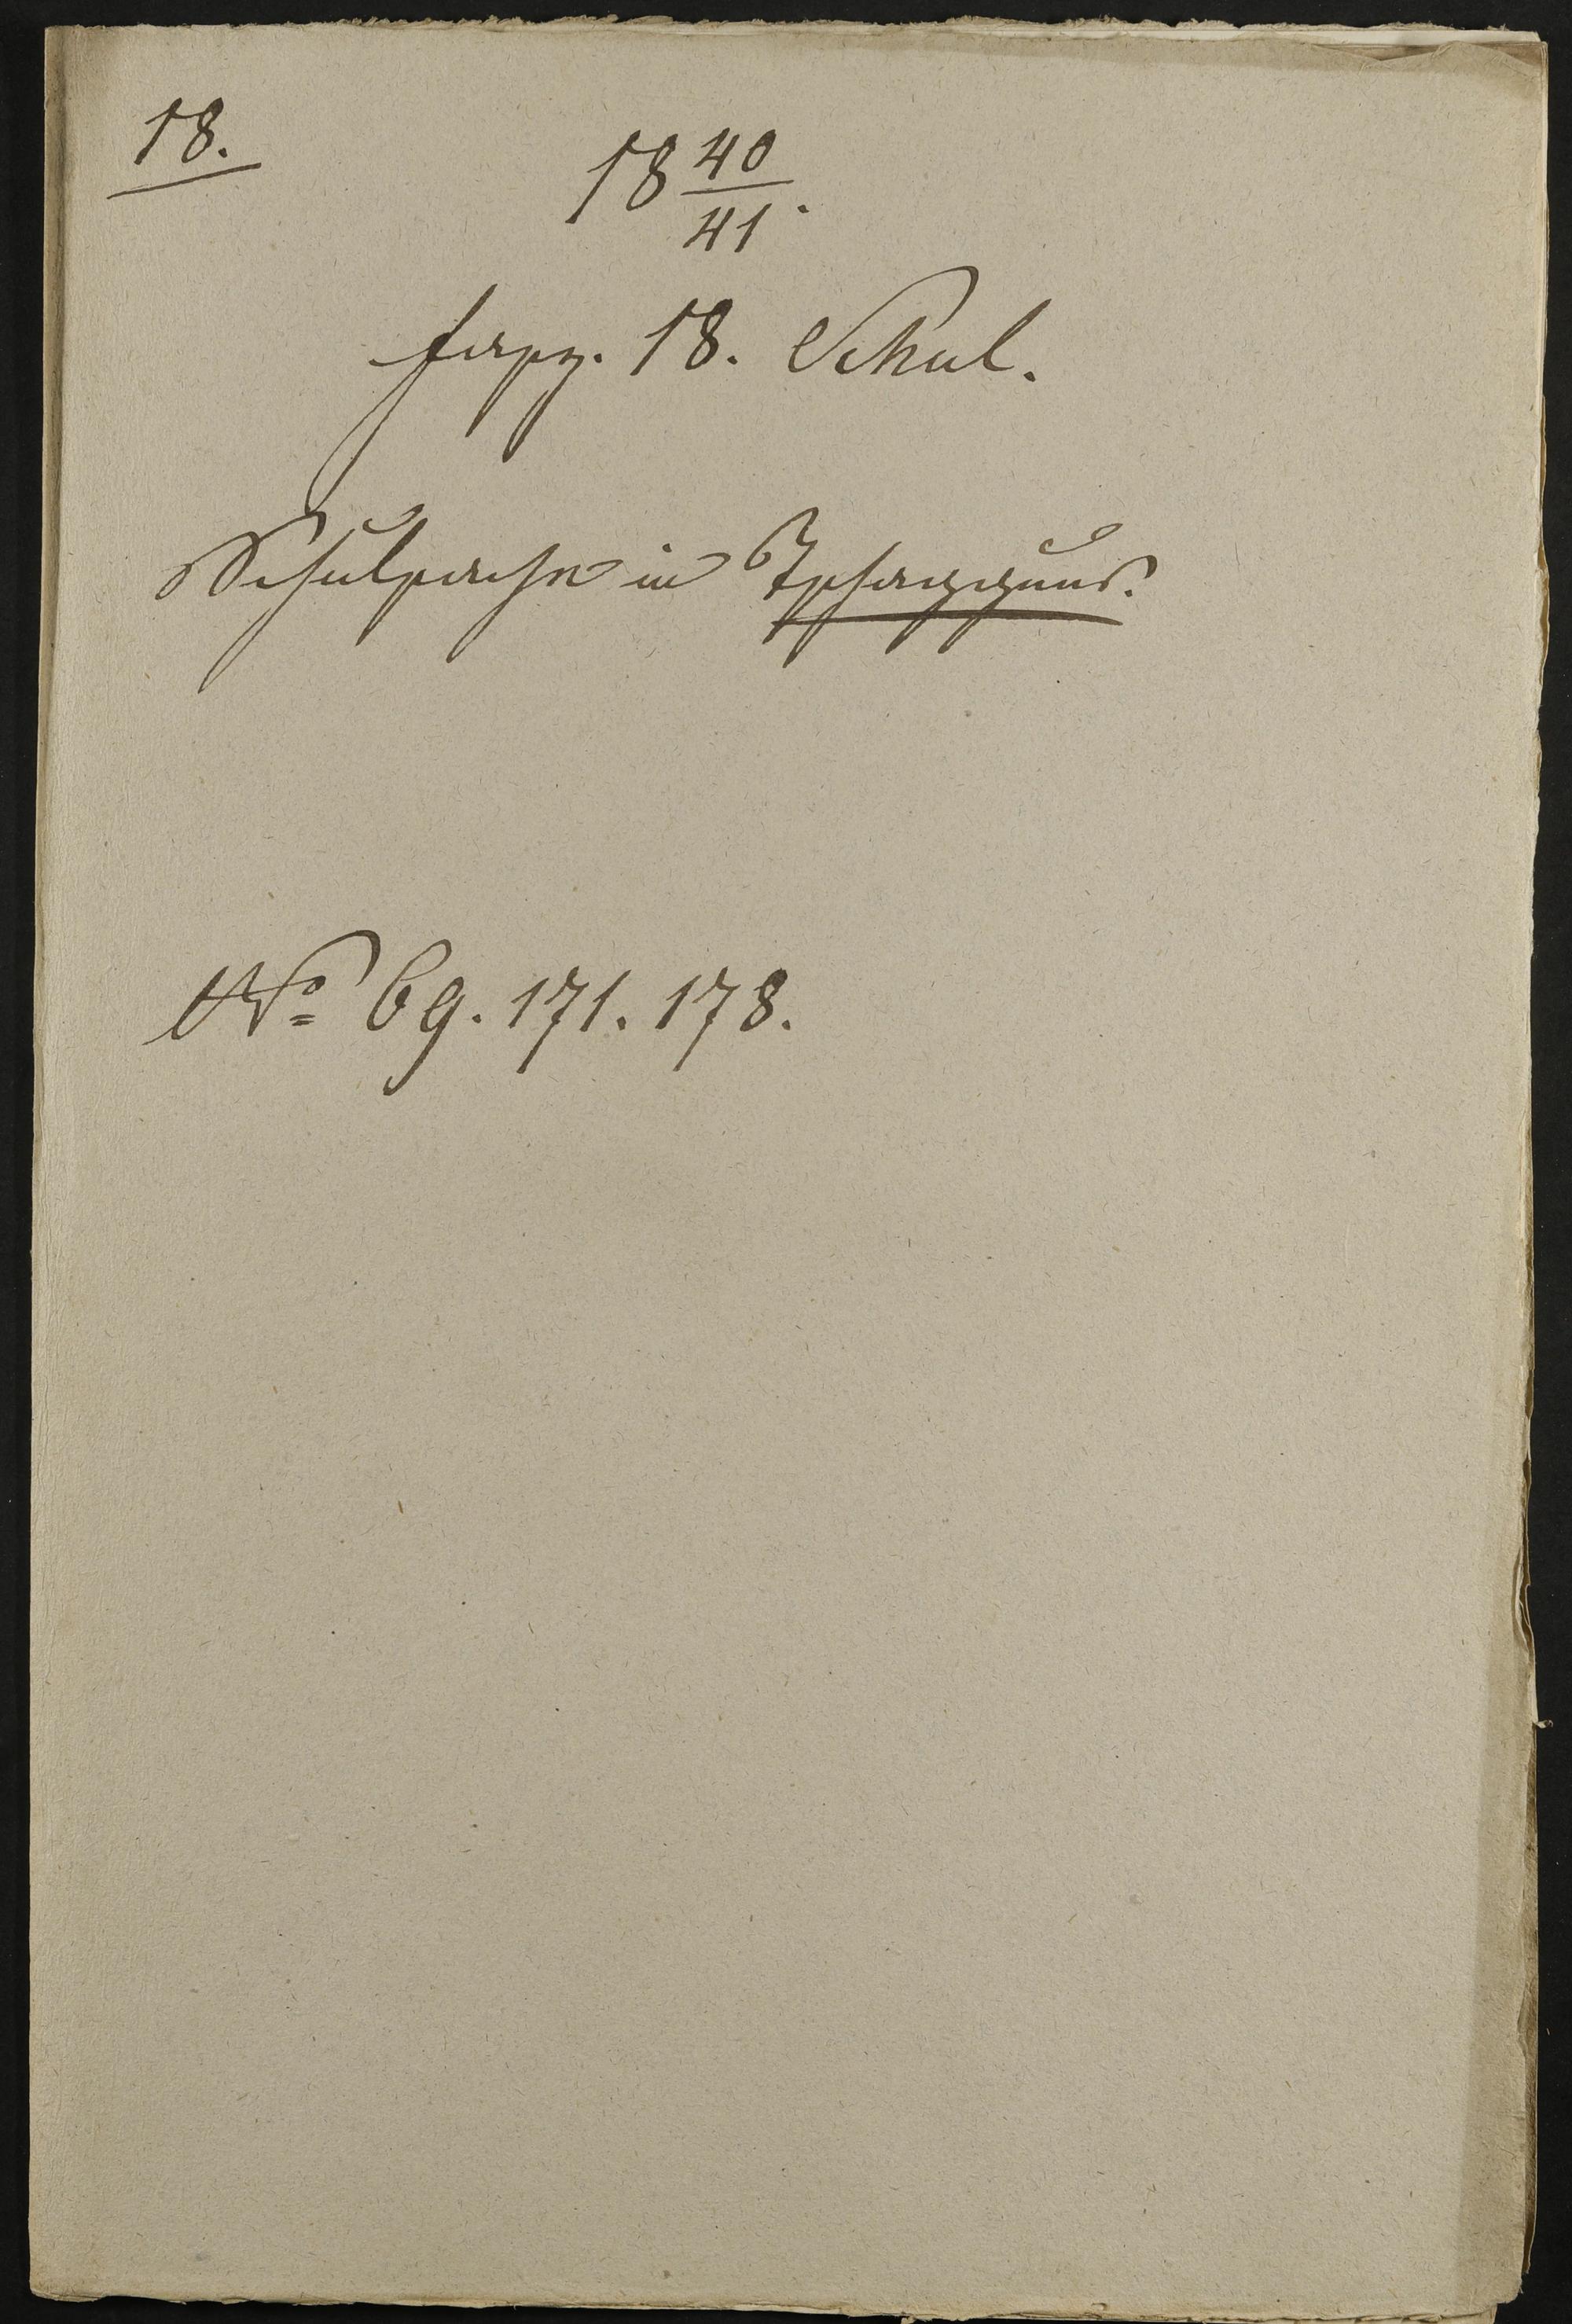 18.
18 40/41.
fasz. 18. Schul.
Schulsache in Tschagguns.
No 69. 171. 178.